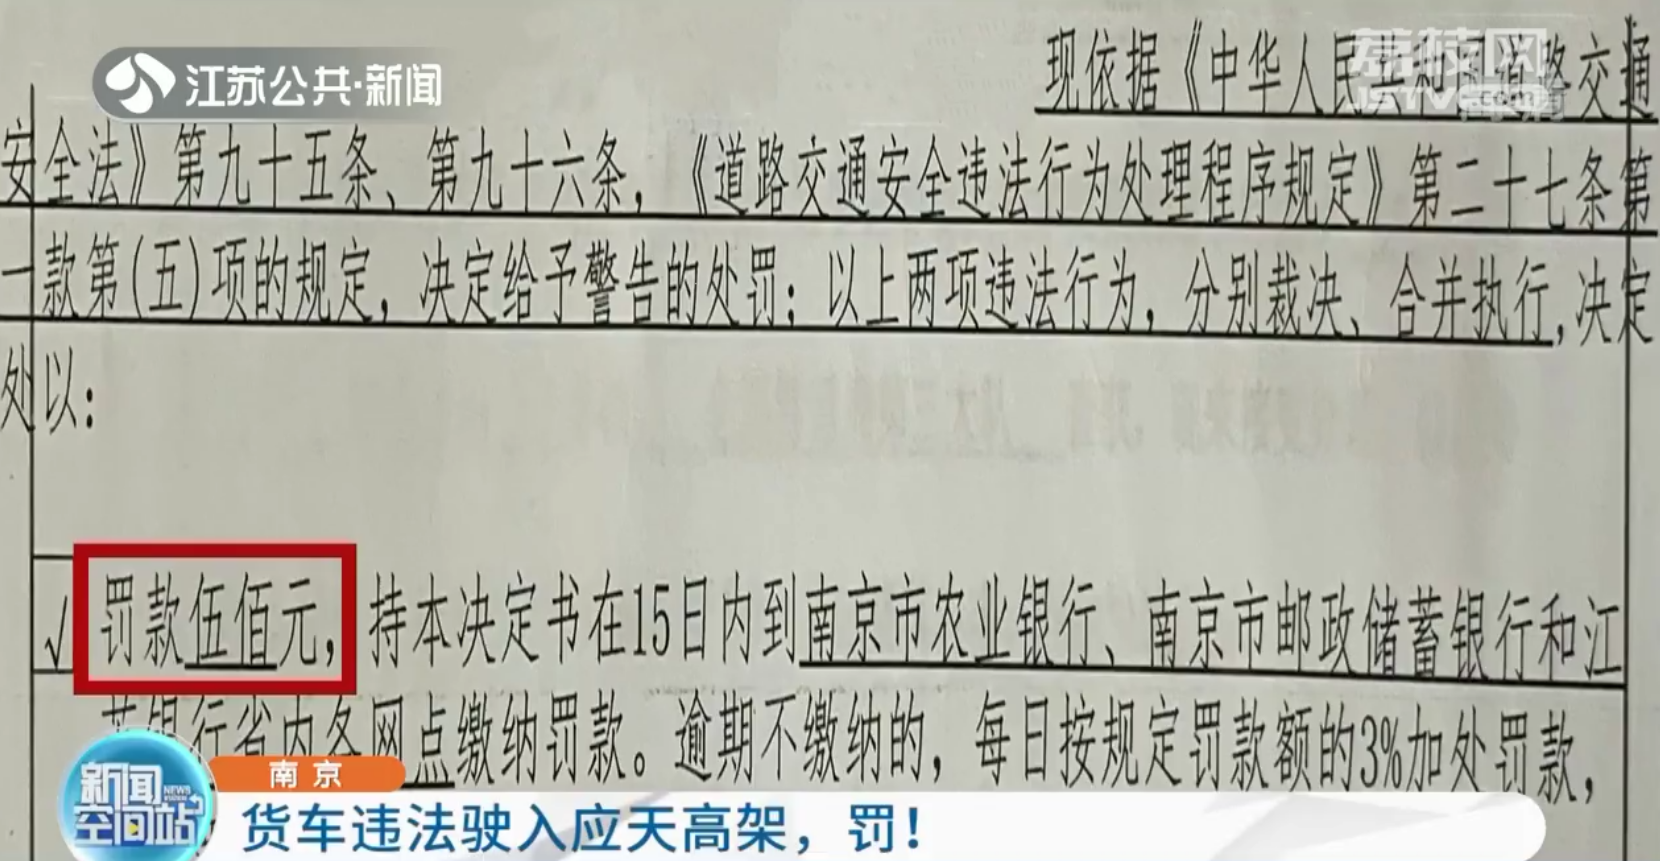 江苏公共·新闻
荔枝网
JSTV.com
现依据《中华人民共和国道路交通
安全法》第九十五条、第九十六条，《道路交通安全违法行为处理程序规定》第二十七条第
一款第(五)项的规定，决定给予警告的处罚；以上两项违法行为，分别裁决、合并执行，决定
处以：
√ 罚款伍佰元，持本决定书在15日内到南京市农业银行、南京市邮政储蓄银行和江
苏银行省内各网点缴纳罚款。逾期不缴纳的，每日按规定罚款额的3%加处罚款，
南京
新闻
NEWS
空间站
货车违法驶入应天高架，罚！